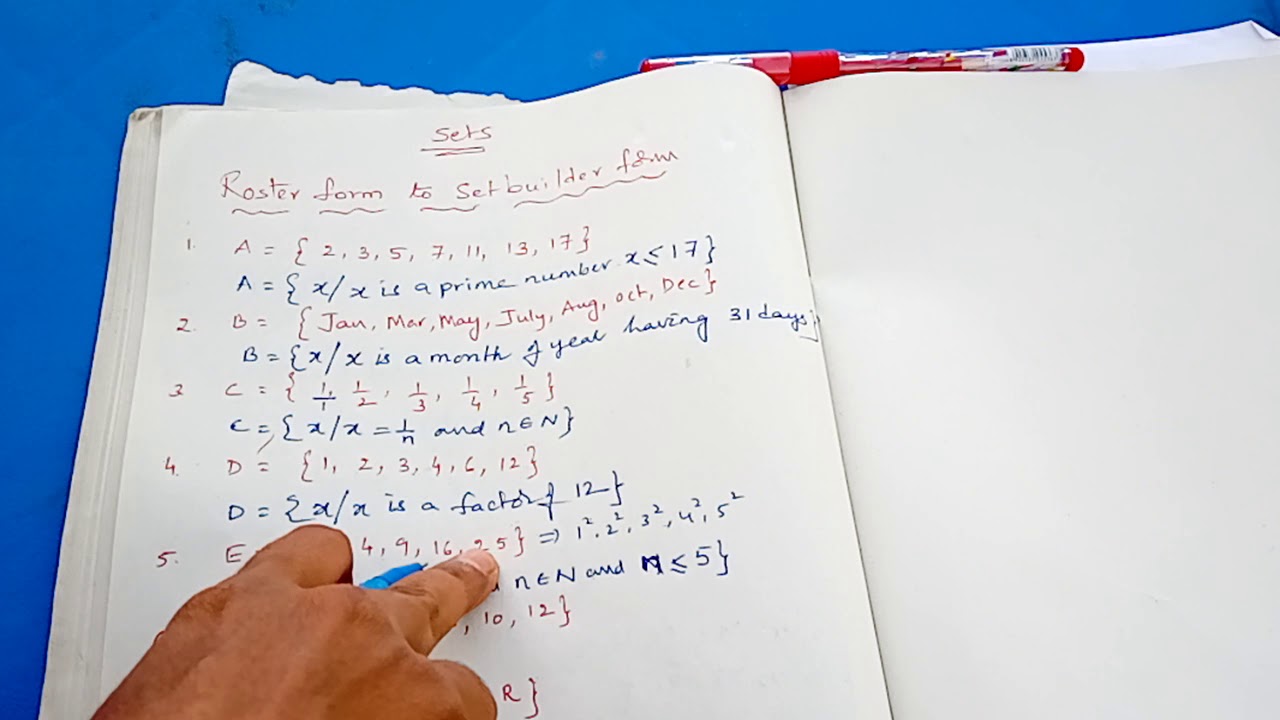 Sets
Roster form to Setbuilder form
1. A = { 2, 3, 5, 7, 11, 13, 17 }
A = { x/x is a prime number x ≤ 17 }
2. B = { Jan, Mar, May, July, Aug, Oct, Dec }
B = { x/x is a month of year having 31 days }
3 C = { 1/1, 1/2, 1/3, 1/4, 1/5 }
C = { x/x = 1/n and n ∈ N }
4. D = { 1, 2, 3, 4, 6, 12 }
D = { x/x is a factor of 12 }
5. E 4, 9, 16, 25 } ⇒ 1², 2², 3², 4², 5²
n ∈ N and n ≤ 5 }
, 10, 12 }
R }